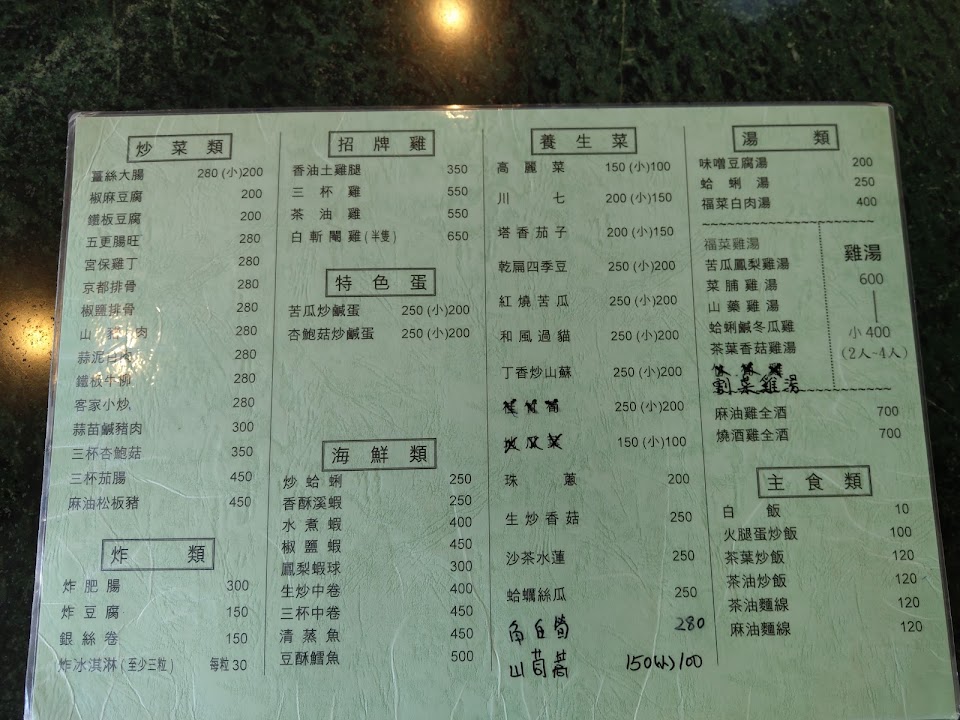 炒菜類
薑絲大腸 280 (小)200
椒麻豆腐 200
鐵板豆腐 200
五更腸旺 280
宮保雞丁 280
京都排骨 280
椒鹽排骨 280
山 肉 280
蒜泥白肉 280
鐵板牛柳 280
客家小炒 280
蒜苗鹹豬肉 300
三杯杏鮑菇 350
三杯茄腸 450
麻油松板豬 450
炸類
炸肥腸 300
炸豆腐 150
銀絲卷 150
炸冰淇淋(至少三粒) 每粒30
招牌雞
香油土雞腿 350
三杯雞 550
茶油雞 550
白斬閹雞(半隻) 650
特色蛋
苦瓜炒鹹蛋 250 (小)200
杏鮑菇炒鹹蛋 250 (小)200
海鮮類
炒蛤蜊 250
香酥溪蝦 250
水煮蝦 400
椒鹽蝦 450
鳳梨蝦球 300
生炒中卷 400
三杯中卷 450
清蒸魚 450
豆酥鱈魚 500
養生菜
高麗菜 150 (小)100
川七 200 (小)150
塔香茄子 200 (小)150
乾扁四季豆 250 (小)200
紅燒苦瓜 250 (小)200
和風過貓 250 (小)200
丁香炒山蘇 250 (小)200
250 (小)200
150 (小)100
珠蔥 200
生炒香菇 250
沙茶水蓮 250
蛤蠣絲瓜 250
角白筍 280
山茼蒿 150(小)100
湯類
味噌豆腐湯 200
蛤蜊湯 250
福菜白肉湯 400
福菜雞湯
苦瓜鳳梨雞湯
菜脯雞湯
山藥雞湯
蛤蜊鹹冬瓜雞
茶葉香菇雞湯
割菜雞湯
雞湯
600
小400
(2人~4人)
麻油雞全酒 700
燒酒雞全酒 700
主食類
白飯 10
火腿蛋炒飯 100
茶葉炒飯 120
茶油炒飯 120
茶油麵線 120
麻油麵線 120